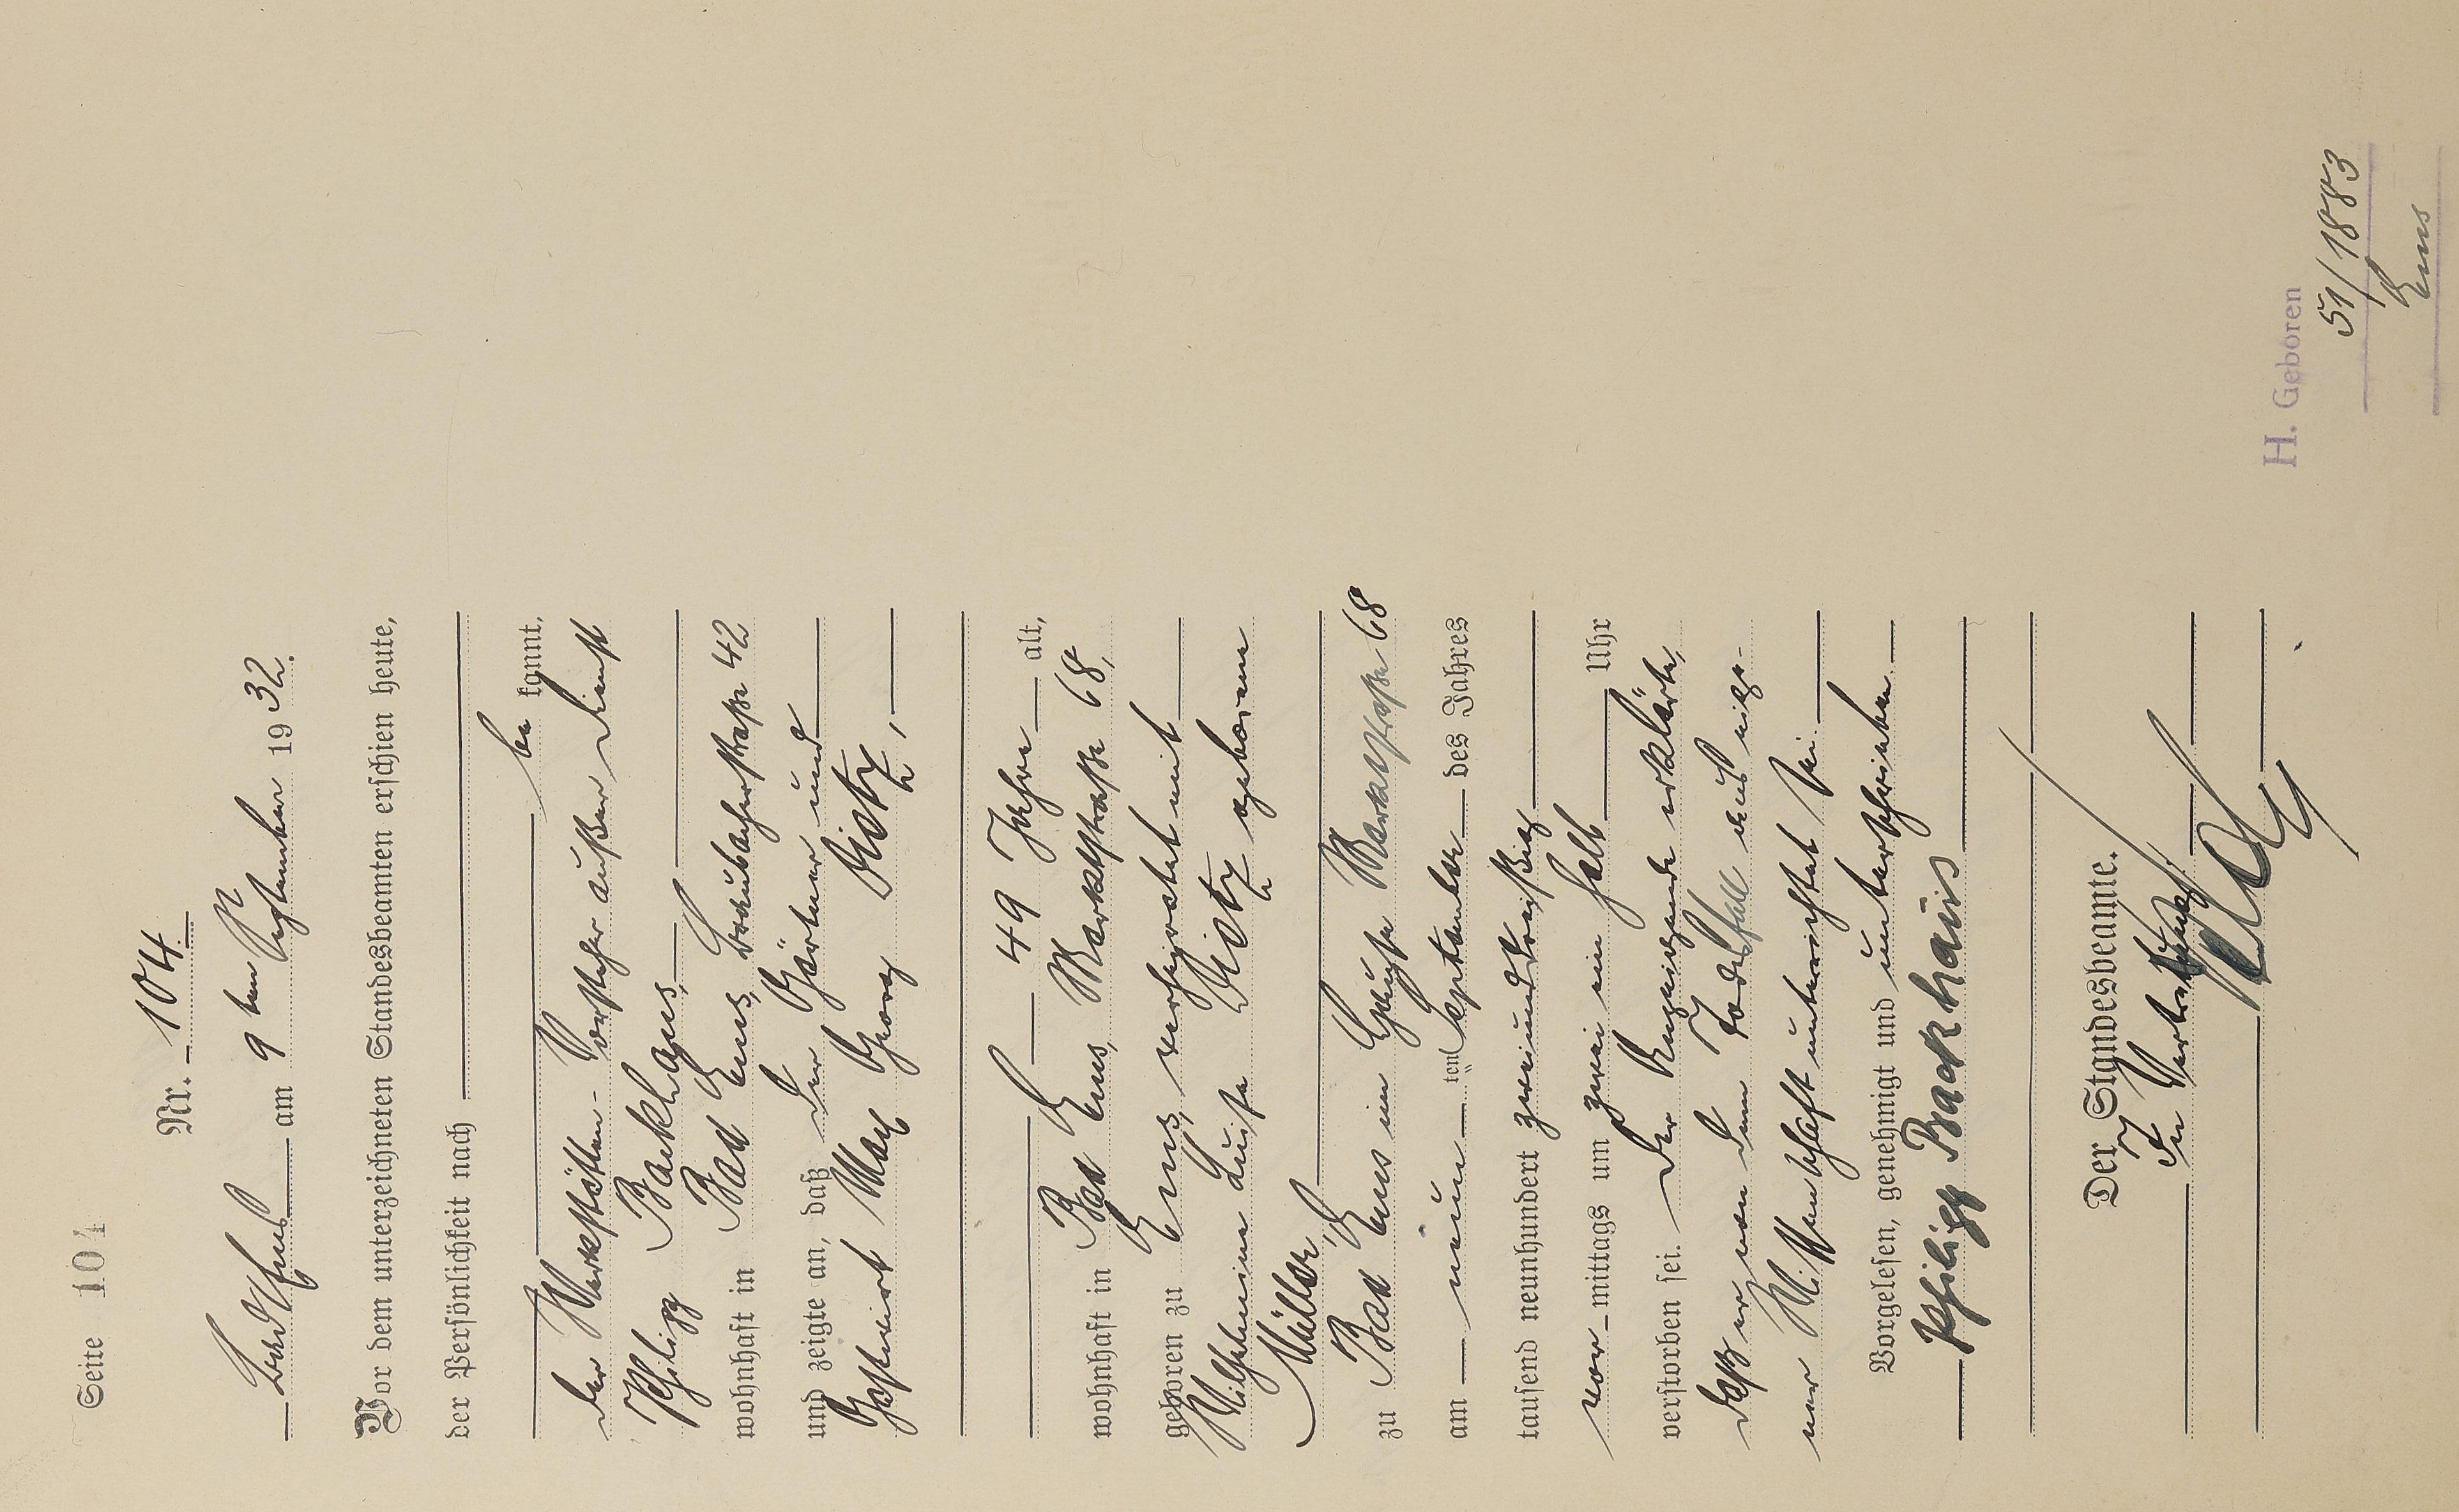 Seite 104
Nr. 104.
Bad Ems am 9ten September 1932.
Vor dem unterzeichneten Standesbeamten erschien heute,
der Persönlichkeit nach
be kannt,
der Werkstätten-Vorsteher außer Dienst
Philipp Backhaus,
wohnhaft in Bad Ems, Braubacherstraße 42
und zeigte an, daß der Gärtner und
Gastwirt Max Georg Dietz,
49 Jahre alt,
wohnhaft in Bad Ems, Marktstraße 68,
geboren zu Ems, verheiratet mit
Wilhelmine Luise Dietz geborene
Müller,
zu Bad Ems im Hause Marktstraße 68
am neun ten September des Jahres
tausend neunhundert zweiunddreißig
vor mittags um zwei ein halb Uhr
verstorben sei. Der Anzeigende erklärte,
daß er von dem Todesfall aus eige-
ner Wissenschaft unterrichtet sei.
Vorgelesen, genehmigt und unterschrieben.
Philipp Backhaus
Der Standesbeamte.
In Vertretung
H. Geboren
51/1883
Ems